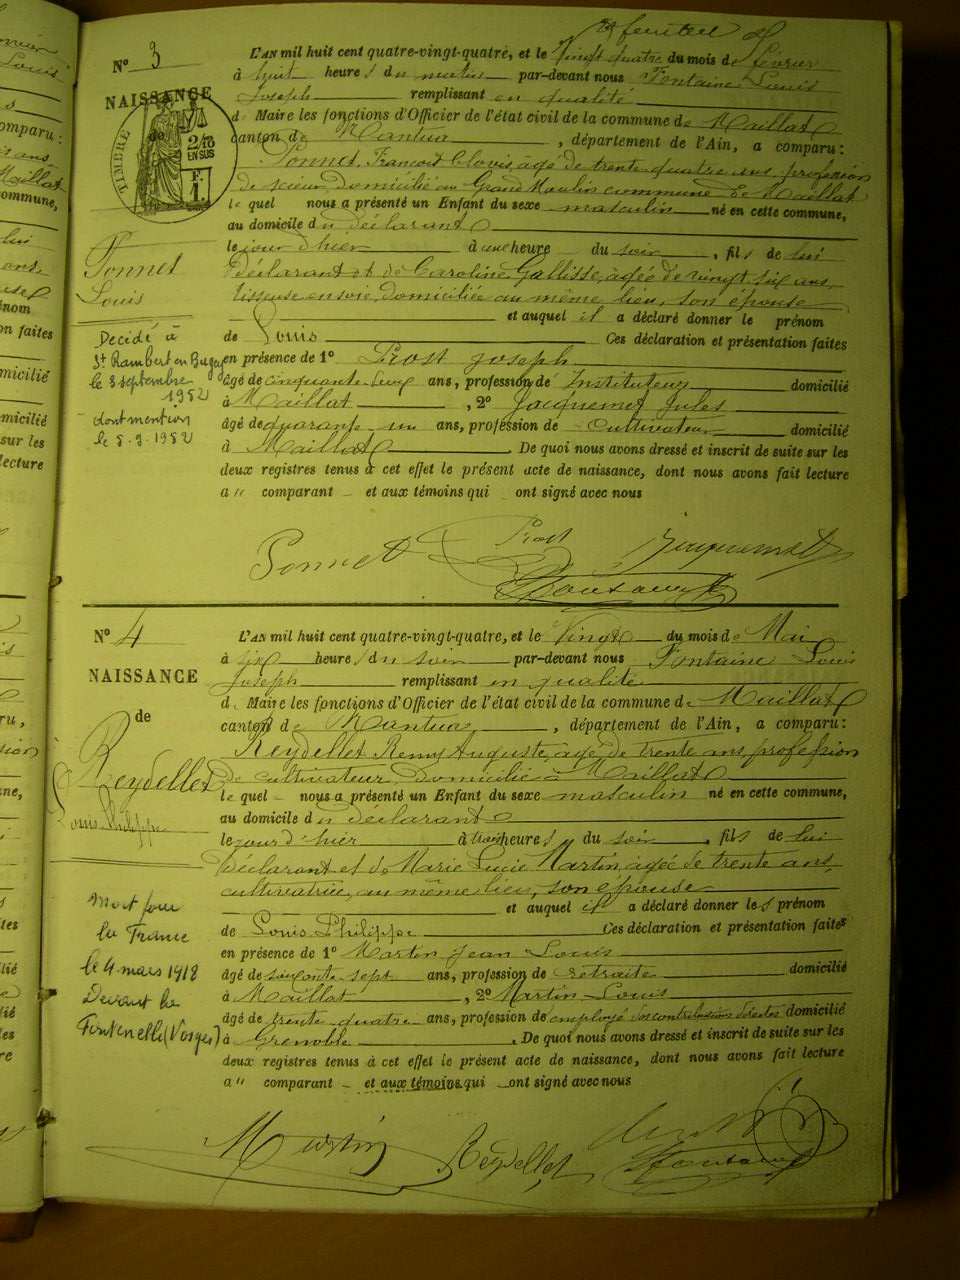 N° 3
NAISSANCE
de
TIMBRE
2/10
EN SUS
F.
1.
Ponnet
Louis
Decédé à
St Rambert en Bugey
le 8 septembre
1952
dont mention
le 8-9-1952
L'AN mil huit cent quatre-vingt-quatre, et le vingt quatre du mois de Février
à huit heures du matin par-devant nous Fontaine Louis
Joseph remplissant en qualité
de Maire les fonctions d'Officier de l'état civil de la commune de Maillat
canton de Nantua, département de l'Ain, a comparu:
Ponnet François Clovis, âgé de trente quatre ans, profession
de scieur, domicilié au Grand Moulin commune de Maillat
lequel nous a présenté un Enfant du sexe masculin né en cette commune,
au domicile du déclarant
le jour d'hier à une heure du soir, fils de lui
déclarant et de Caroline Gallisse, âgée de vingt six ans,
tisseuse en soie, domiciliée au même lieu, son épouse
et auquel il a déclaré donner le prénom
de Louis Ces déclaration et présentation faites
en présence de 1° Prost Joseph
âgé de cinquante deux ans, profession de Instituteur domicilié
à Maillat, 2° Jacquemet Jules
âgé de quarante un ans, profession de Cultivateur domicilié
à Maillat. De quoi nous avons dressé et inscrit de suite sur les
deux registres tenus à cet effet le présent acte de naissance, dont nous avons fait lecture
au comparant et aux témoins qui ont signé avec nous
Ponnet Prost Jacquemet
Fontaine
N° 4
NAISSANCE
de
Reydellet
Louis Philippe
Mort pour
la France
le 4 mars 1918
Devant la
Fontenelle (Vosges)
L'AN mil huit cent quatre-vingt-quatre, et le Vingt du mois de Mai
à six heures du soir par-devant nous Fontaine Louis
Joseph remplissant en qualité
de Maire les fonctions d'Officier de l'état civil de la commune de Maillat
canton de Nantua, département de l'Ain, a comparu:
Reydellet Remy Auguste, âgé de trente ans, profession
de cultivateur, domicilié à Maillat
lequel nous a présenté un Enfant du sexe masculin né en cette commune,
au domicile du déclarant
le jour d'hier à trois heures du soir, fils de lui
déclarant et de Marie Lucie Martin, âgée de trente ans,
cultivatrice, au même lieu, son épouse
et auquel il a déclaré donner les prénom
de Louis Philippe Ces déclaration et présentation faites
en présence de 1° Martin Jean Louis
âgé de soixante sept ans, profession de retraité domicilié
à Maillat, 2° Martin Louis
âgé de trente quatre ans, profession de employé des contributions directes domicilié
à Grenoble. De quoi nous avons dressé et inscrit de suite sur les
deux registres tenus à cet effet le présent acte de naissance, dont nous avons fait lecture
au comparant et aux témoins qui ont signé avec nous
Martin Reydellet
Fontaine